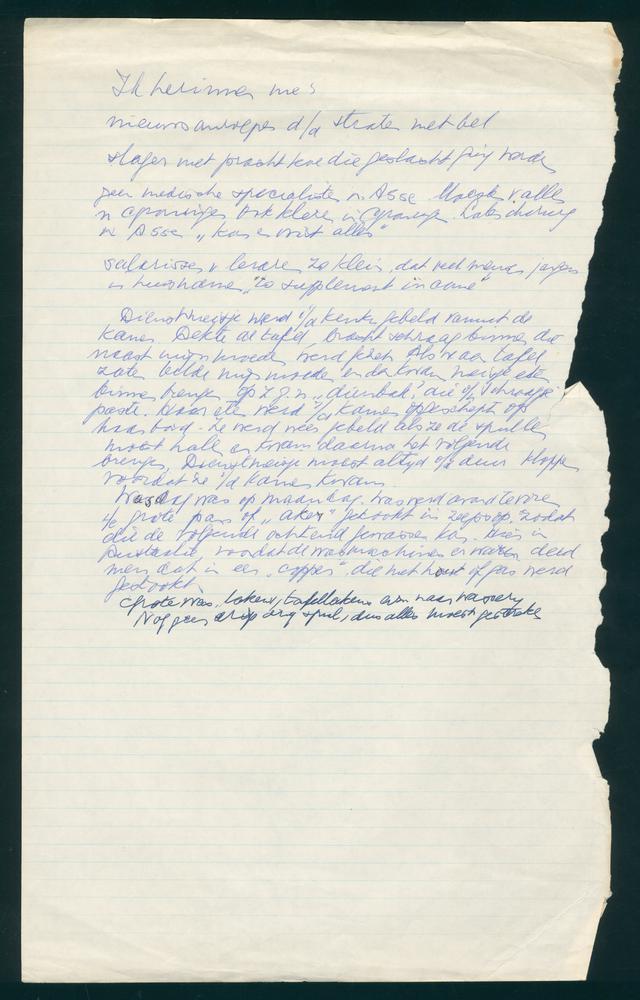 Ik herinner me:
nieuwsomroeper d/d straten met bel
slager met prachtkoe die geslacht ging worden
geen medische specialisten in Asse Moesten v. alles
in Groningen Ook kleren in Groningen. Later
in Asse „kan er wist alles”
salarissen v leraren zo klein, dat veel mensen jongens
in huis namen „to supplement income”
Dienstmeisje werd i/d keuken gebeld vanuit de
kamer. Dekte de tafel, bracht schraag binnen die
naast mijn moeder werd gezet. Als we aan tafel
zaten belde mijn moeder en dan kwam meisje eten
binnen brengen op z.g.n. „dienbak”, die op schraagje
paste. Daar eten werd i/d kamer opgeschept op
haar bord. Ze werd weer gebeld als ze de spullen
moest halen en kwam daarna het volgende
brengen. Dienstmeisje moest altijd o/d deur kloppen
voordat ze i/d kamer kwam.
Wasdag was op maandag. Was werd avond tevoren
i/d grote pan of „aker” gekookt in zeepsop, zodat
die de volgende ochtend gewassen kon. Hier in
Australië, voordat de wasmachines er waren deed
men dat in een „copper” die met hout of gas werd
gestookt.
Grote was, lakens, tafellakens even naar wassery
Nog geen drip dry spul, dus alles moest gestreken